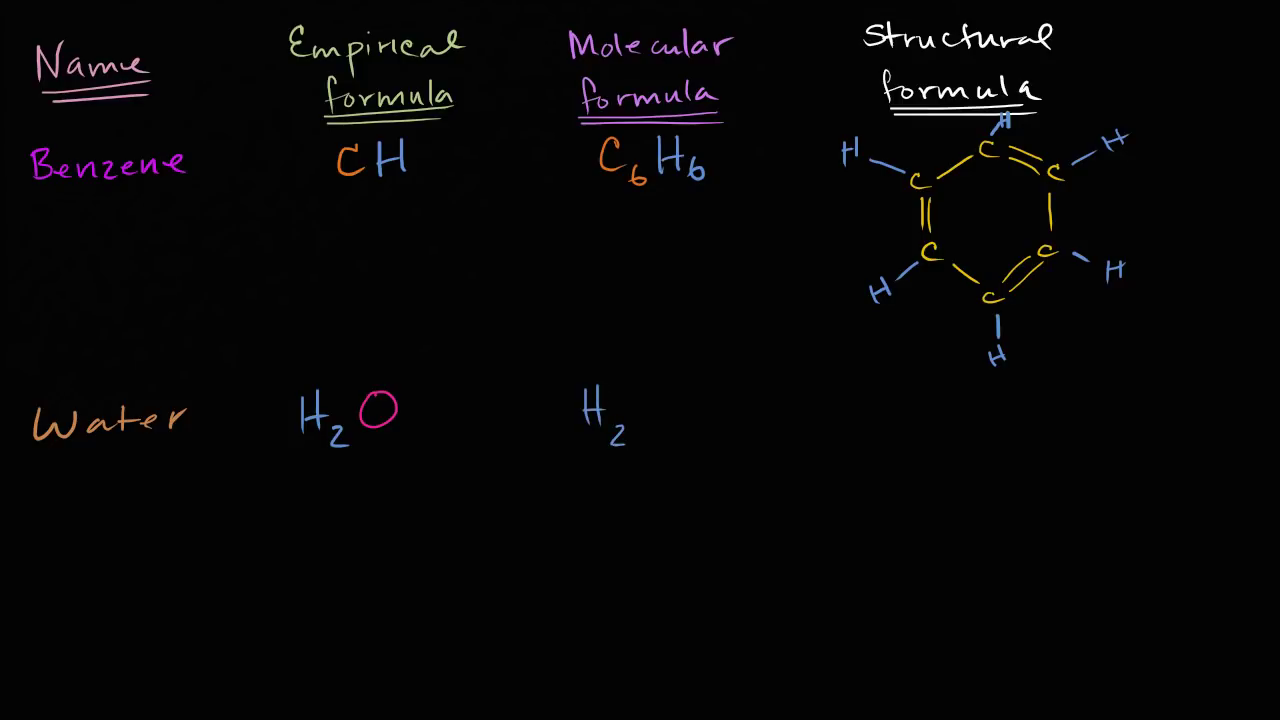 Name Empirical formula Molecular formula Structural formula
Benzene CH C6H6
H H H
C C C
C C
H C H
H
Water H2O H2